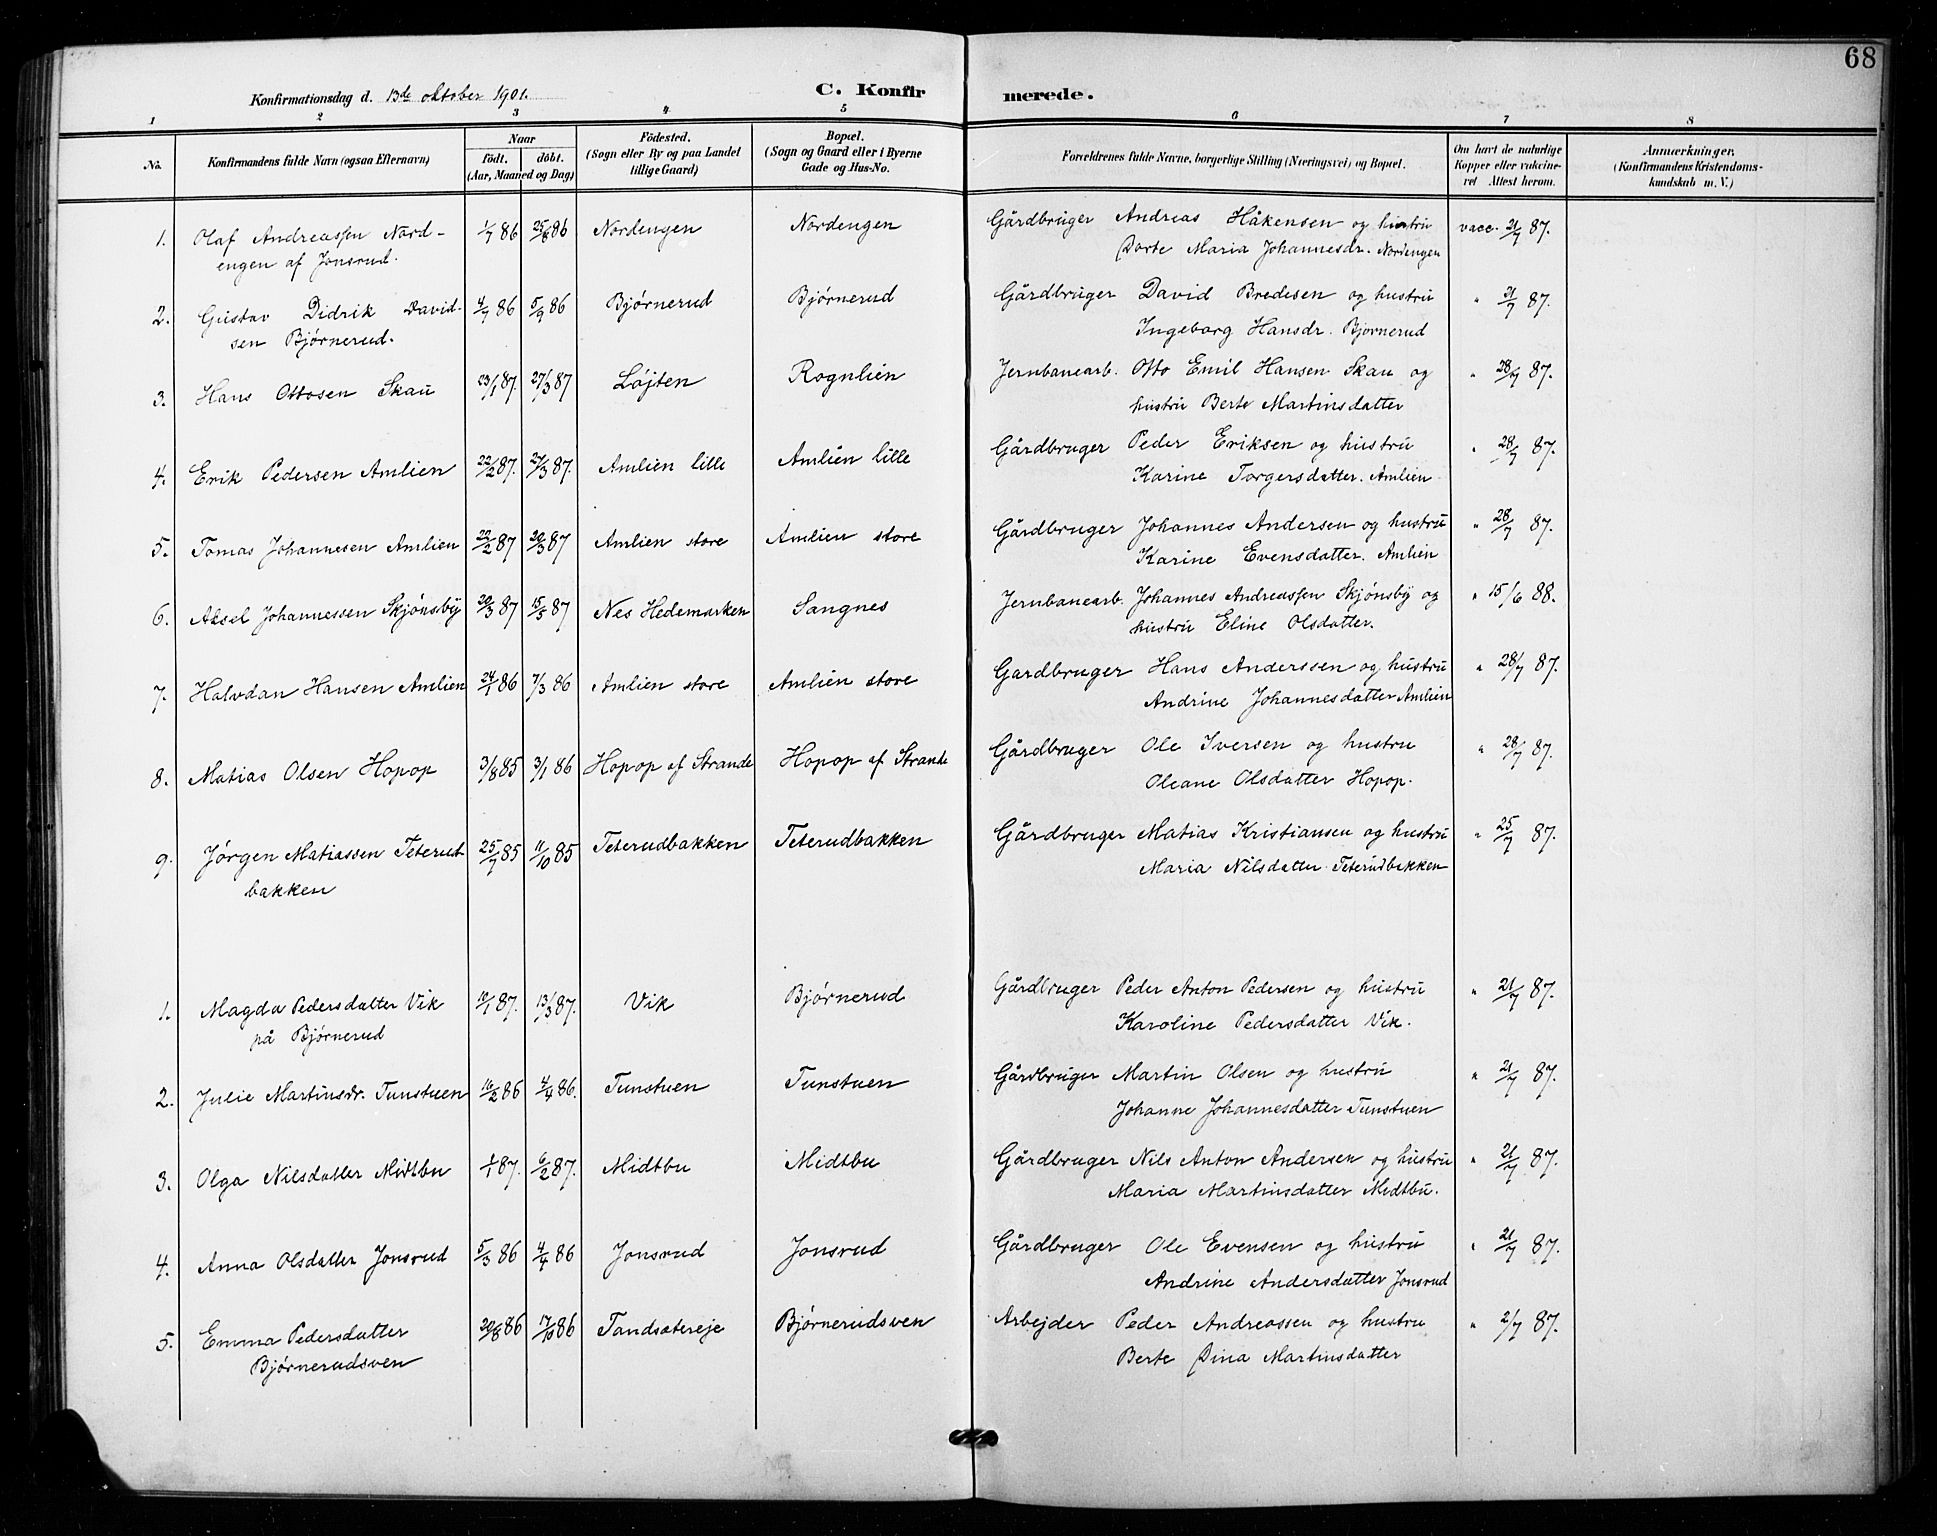 68
Konfirmationsdag d. 13de oktober 1901. C. Konfirmerede.
1 2 3 4 5 6 7 8
No. Konfirmandens fulde Navn (ogsaa Efternavn) Naar født. døbt. (Aar, Maaned og Dag) Födested. (Sogn eller By og paa Landet tillige Gaard) Bopæl. (Sogn og Gaard eller i Byerne Gade og Hus-No. Forældrenes fulde Navne, borgerlige Stilling (Næringsvei) og Bopæl. Om havt de naturlige Kopper eller vakcineret Attest herom. Anmærkninger. (Konfirmandens Kristendomskundskab m. V.)
1. Olaf Andreassen Nord- 1/7 86 25/8 86 Nordengen Nordengen Gårdbruger Andreas Håkensen og hustru vacc. 21/7 87.
engen af Jonsrud. Dorte Maria Johannesdr. Nordengen
2. Gustav Didrik David- 4/7 86 5/9 86 Bjørnerud Bjørnerud Gårdbruger David Bredesen og hustru " 21/7 87.
sen Bjørnerud. Ingeborg Hansdr. Bjørnerud
3. Hans Ottosen Skau 23/1 87. 27/3 87 Løjten Rognlien Jernbanearb. Otto Emil Hansen Skau og " 28/7 87.
hustru Berte Martinsdatter
4. Erik Pedersen Amlien 22/2 87. 27/3 87. Amlien lille Amlien lille Gårdbruger Peder Eriksen og hustru " 28/7 87.
Karine Torgersdatter. Amlien
5. Tomas Johannesen Amlien 22/2 87 20/3 87 Amlien store Amlien store Gårdbruger Johannes Andersen og hustru " 28/7 87.
Karine Evensdatter. Amlien
6. Aksel Johannessen Skjønsby 20/3 87 15/5 87 Nes Hedemarken Sangnes Jernbanearb. Johannes Andreassen Skjønsby og " 15/6 88.
hustru Eline Olsdatter.
7. Halvdan Hansen Amlien 24/1 86 7/3 86 Amlien store Amlien store Gardbruger Hans Anderssen og hustru " 28/7 87.
Andrine Johannesdatter Amlien
8. Matias Olsen Hopop 3/8 85 3/1 86 Hopop af Strande Hopop af Strande Gårdbruger Ole Iversen og hustru " 28/7 87.
Oleane Olsdatter Hopop.
9. Jørgen Matiassen Teterud 25/7 85 11/10 85 Teterudbakken Teterudbakken Gårdbruger Matias Kristiansen og hustru " 25/7 87.
bakken Maria Nilsdatter Teterudbakken
1. Magda Pedersdatter Vik 10/1 87. 13/3 87. Vik Bjørnerud Gårdbruger Peder Anton Pedersen og hustru " 21/7 87.
på Bjørnerud Karoline Pedersdatter Vik.
2. Julie Martinsdr. Tunstuen 16/2 86 4/4 86. Tunstuen Tunstuen Gårdbruger Martin Olsen og hustru " 21/7 87.
Johanne Johannesdatter Tunstuen
3. Olga Nilsdatter Midtbu 1/1 87. 6/2 87. Midtbu Midtbu Gårdbruger Nils Anton Andersen og hustru " 21/7 87.
Maria Martinsdatter Midtbu.
4. Anna Olsdatter Jonsrud 5/3 86 4/4 86 Jonsrud Jonsrud Gårdbruger Ole Evensen og hustru " 21/7 87.
Andrine Andersdatter Jonsrud
5. Emma Pedersdatter 20/8 86 17/10 86 Tandsætereje Bjørnerudsven Arbejder Peder Andreassen og hustru " 2/7 87.
Bjørnerudsven Berte Dina Martinsdatter